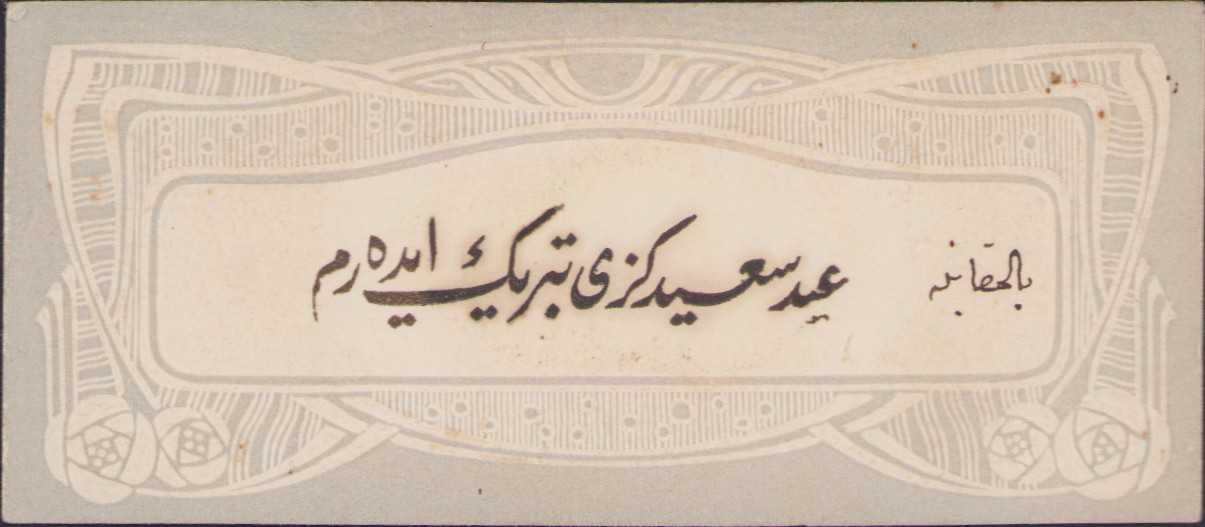 بالمقابله عید سعیدکزی تبریك ایده رم